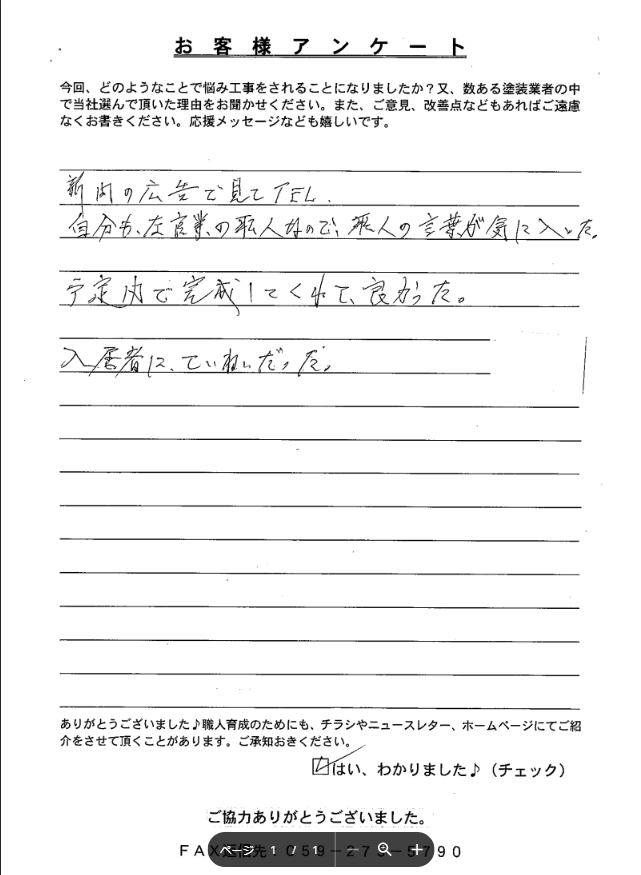 お客様アンケート
今回、どのようなことで悩み工事をされることになりましたか？又、数ある塗装業者の中
で当社選んで頂いた理由をお聞かせください。また、ご意見、改善点などもあればご遠慮
なくお書きください。応援メッセージなども嬉しいです。
新聞の広告で見てTEL.
自分も、左官業の職人なので、職人の言葉が気に入った。
予定内で完成してくれて、良かった。
入居者に、ていねいだった。
ありがとうございました♪職人育成のためにも、チラシやニュースレター、ホームページにてご紹
介をさせて頂くことがあります。ご承知おきください。
はい、わかりました♪（チェック）
ご協力ありがとうございました。
FAX送信先：059－27
790
ページ 1 / 1 － ＋